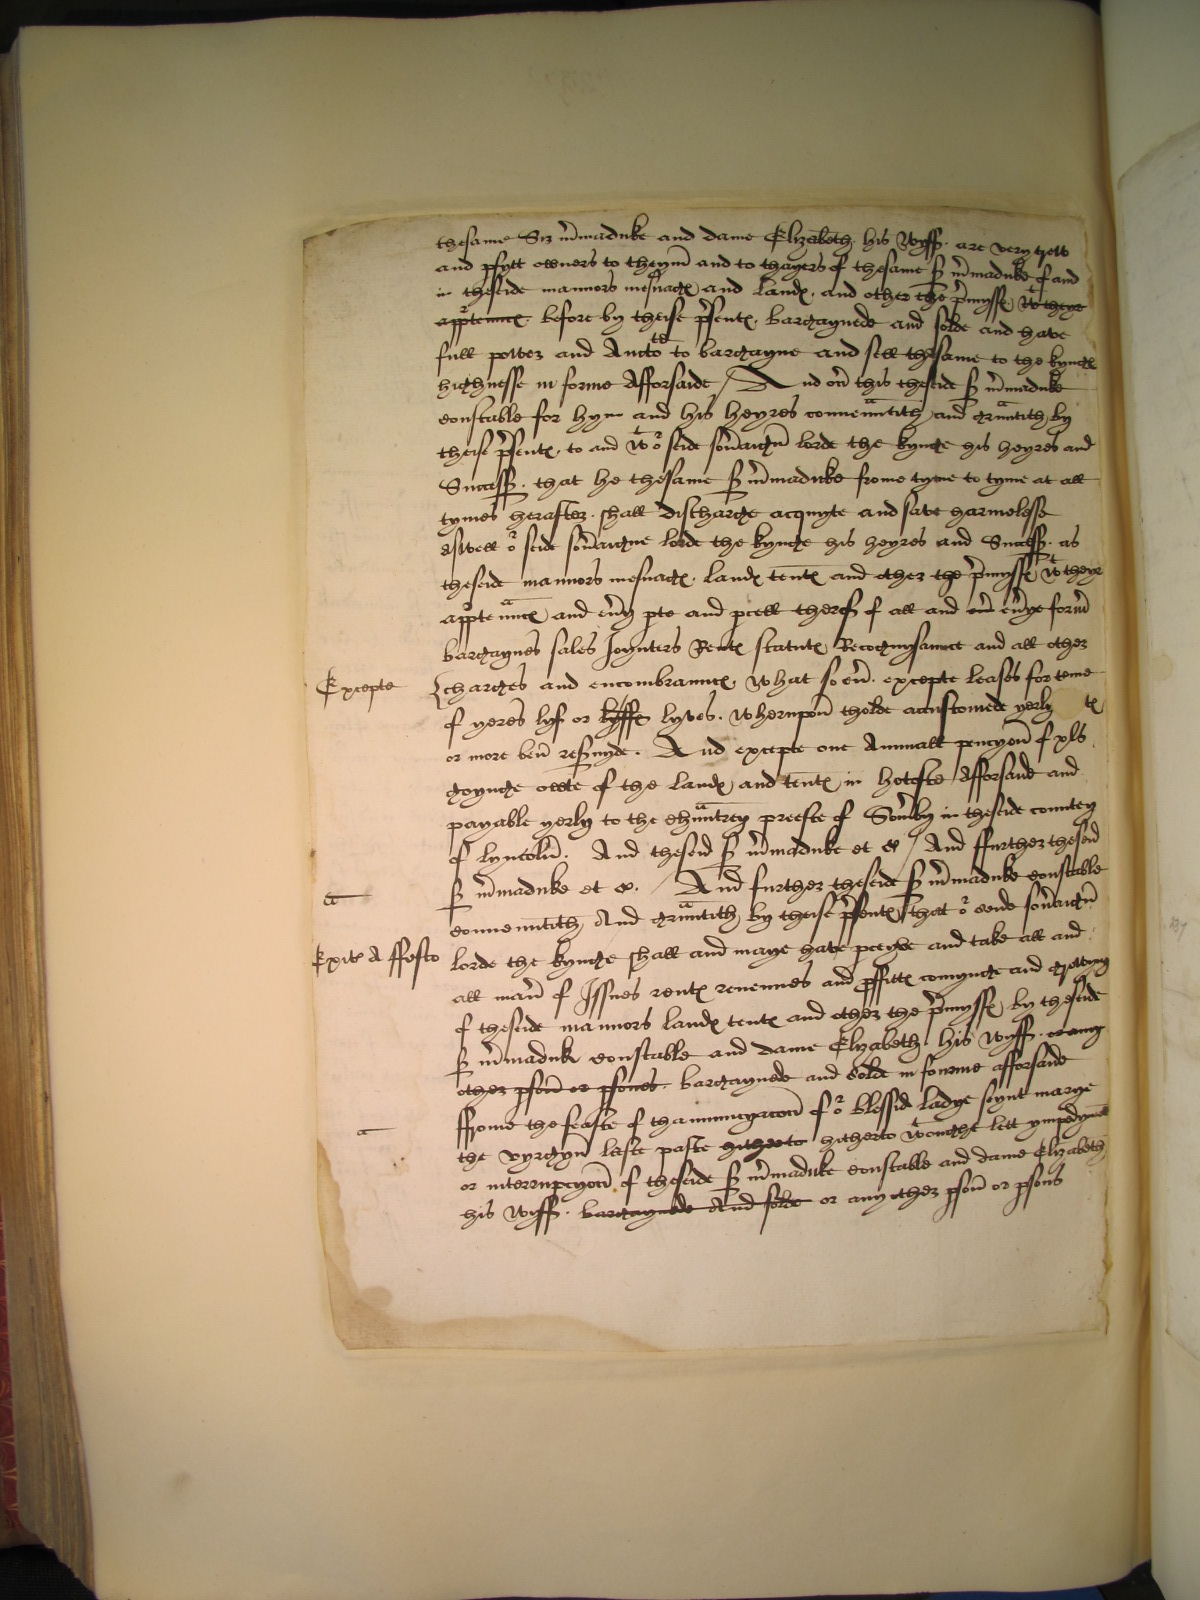 thesame Sir mmaduke and dame Elizabeth his wyff. are very trew
and pfytt owners to theym and to thayers of thesame S mmaduke of and
in theseide mannors mesuagx and landx. and other the pmyssx wt theyr
apptenncx before by theise psentx. bargaynede and solde and have
full power and Auctotd to bargayne and sell thesame to the kyngx
highnesse in forme Afforsaide / And on this theseide S mmaduke
constable for hym and his heyres convenntith and grauntith by
theise psentx. to and wt or seide soveraign lorde the kynge his heyres and
Success. that he thesame S mmaduke frome tyme to tyme at all
tymes herafter. shall discharge acquyte and save harmelesse
aswell or seide soveraigne lorde the kynge his heyres and Success. as
theseide mannors mesuagx. landx tentx and other the pmyssx wt theyr
apptenncx and evy pte and pcell therof of all and evye form
bargaynes sales Joynters Rentx statutx Recognysaunce and all other
Excepte
charges and encombrauncx. what so ev. excepte leases for teme
of yeres lyf or lyffx lyves. wherupon tholde accustomede yerly tx
or more ben resuyde. And excepte one Annuall pencyon of xls
goynge owte of the landx and tentx in hotofte Afforsaide and
payable yerly to the chauntrey preeste of Somby in theseide countey
of lyncoln. And theseid S mmaduke et &c / And ffurther theseid
S mmaduke et &c. / And further theseide S mmaduke constable
convenntith And grauntith by theise psentx that or seide soveraign
Exitx A ffesto
lorde the kynge shall and maye have pceyve and take all and
all man of Issues rentx revenues and pffittx comynge and growyng
of theseide mannors landx tentx and other the pmyssx by theseide
S mmaduk constable and dame Elizabeth his wyff. or any
other pson or psones. bargaynede and solde in fourme afforsaide
ffrome the feaste of thannuncyacion of or blessid ladye seynt marye
the vyrgyn laste paste hitherto hitherto wtoughe lett ympedyment
or interrupcyon of theseide S mmaduke constable and dame Elizabeth
his wyff. bargaynede And solde or any other pson or psons